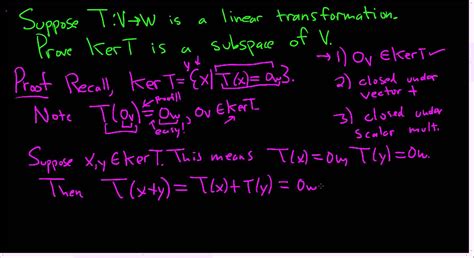 Suppose T:V→W is a linear transformation.
Prove KerT is a subspace of V.
→ 1) 0v ∈ KerT ✓
2) closed under vector +
3) closed under scalar mult.
Proof Recall, KerT = {x | T(x) = 0w}.
v
Note T(0v) = 0w, 0v ∈ KerT.
easy!
Suppose x,y ∈ KerT. This means T(x)=0w, T(y)=0w.
Then T(x+y) = T(x)+T(y) = 0w